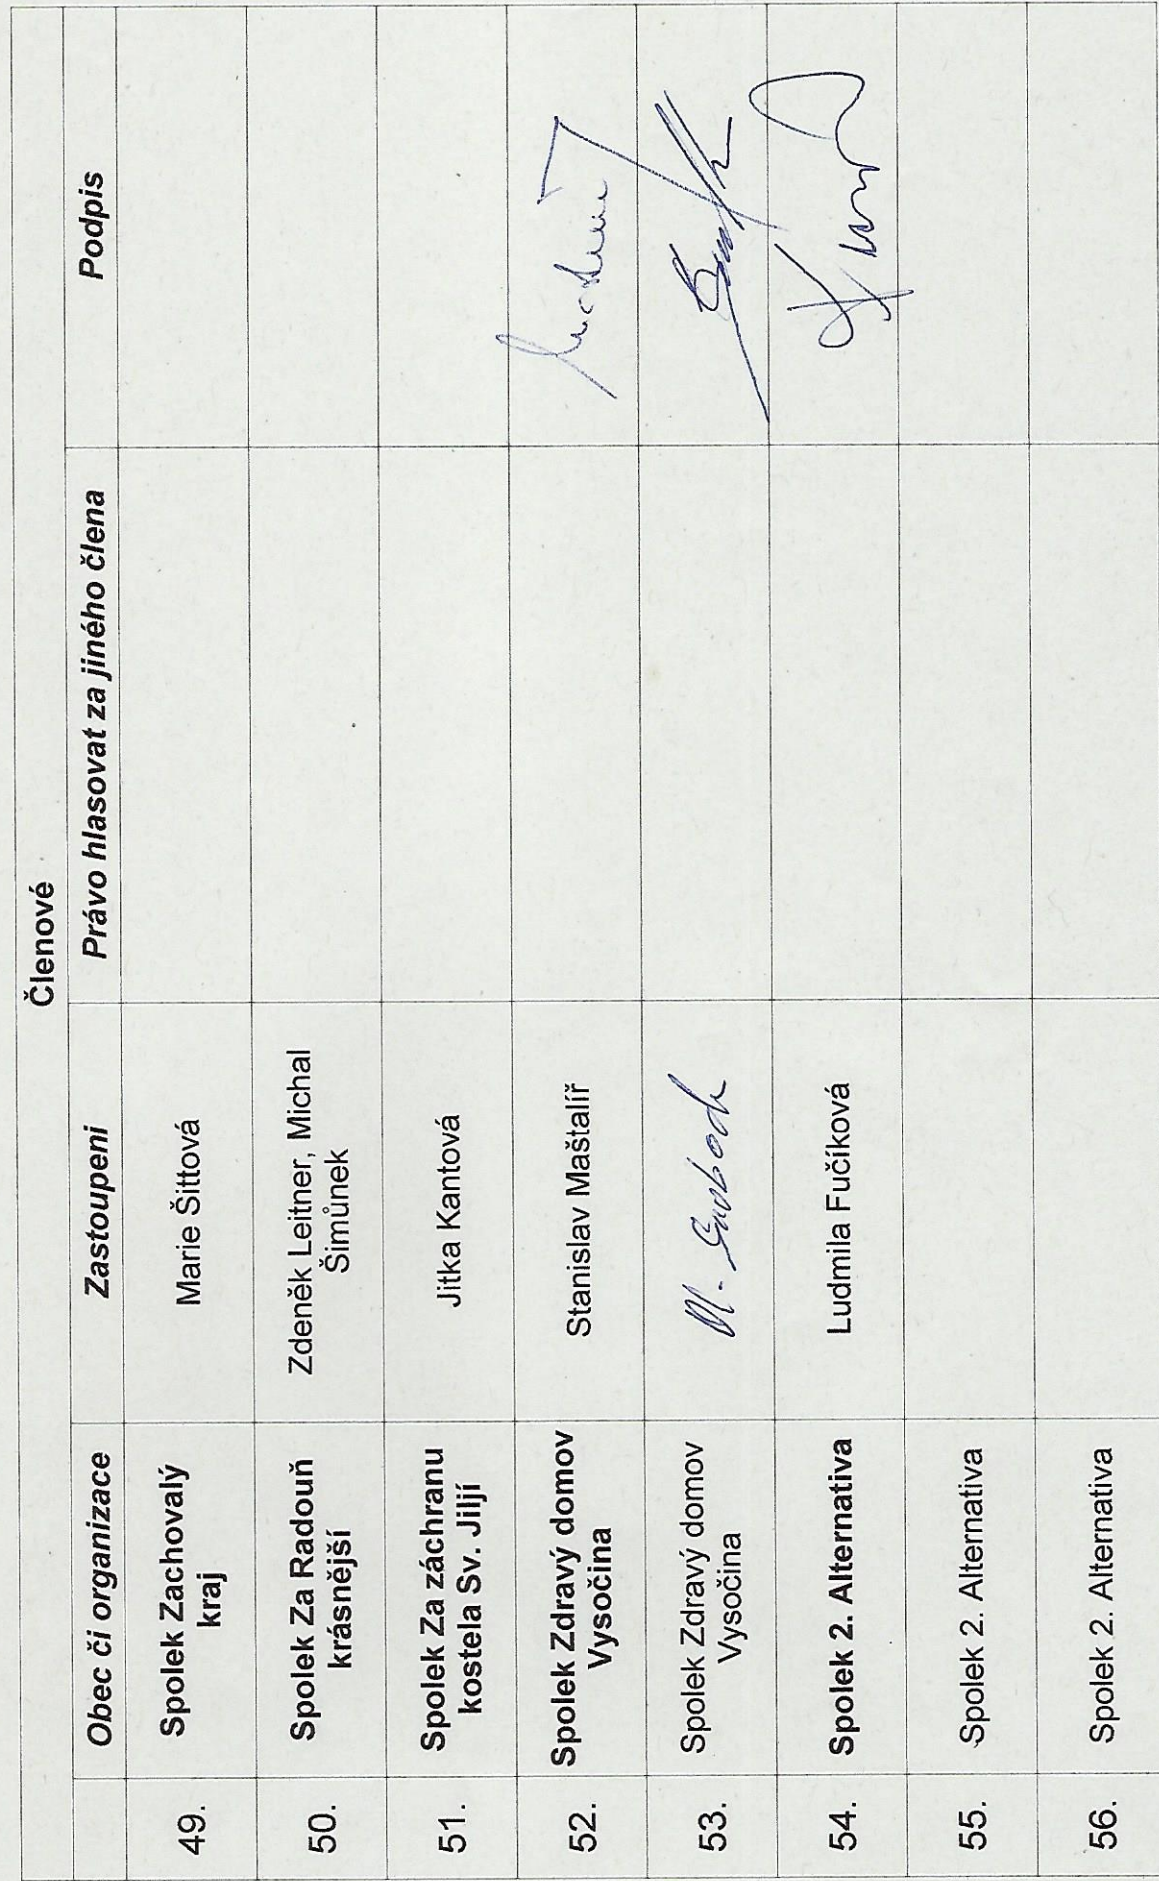 Členové
Obec či organizace Zastoupeni Právo hlasovat za jiného člena Podpis
49. Spolek Zachovalý kraj Marie Šittová
50. Spolek Za Radouň krásnější Zdeněk Leitner, Michal Šimůnek
51. Spolek Za záchranu kostela Sv. Jiljí Jitka Kantová
52. Spolek Zdravý domov Vysočina Stanislav Maštalíř
53. Spolek Zdravý domov Vysočina
54. Spolek 2. Alternativa Ludmila Fučíková
55. Spolek 2. Alternativa
56. Spolek 2. Alternativa